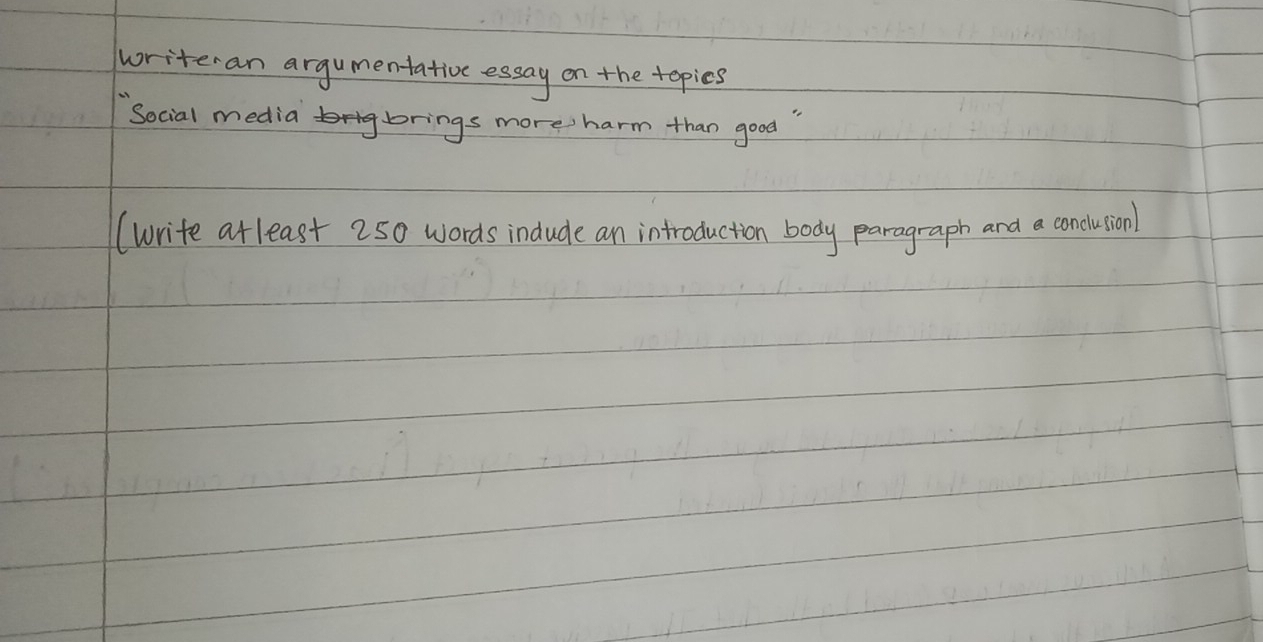 write an argumentative essay on the topics
"Social media brig brings more harm than good"
(write atleast 250 words include an introduction body paragraph and a conclusion)